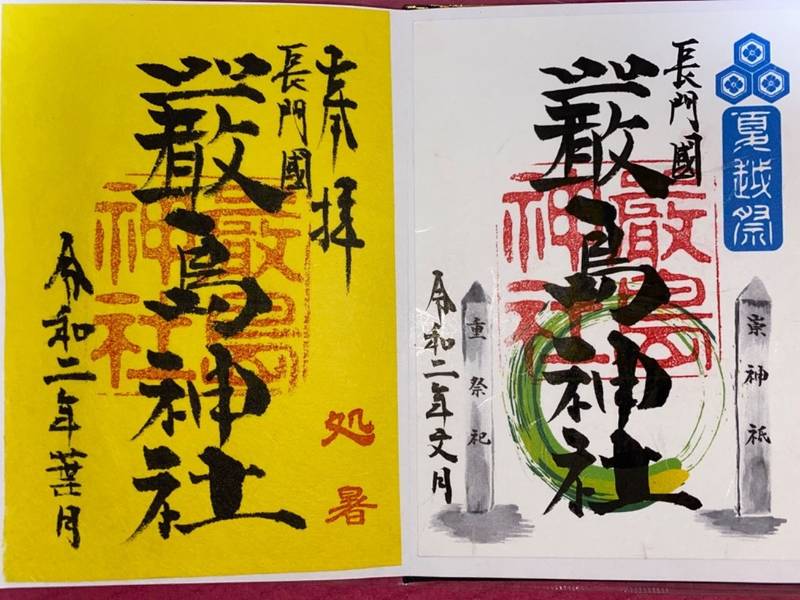 夏越祭
崇神祇
長門國
厳島神社
嚴島
神社
重祭祀
令和二年文月
奉拝
長門國
処暑
厳島神社
嚴島
神社
令和二年葉月